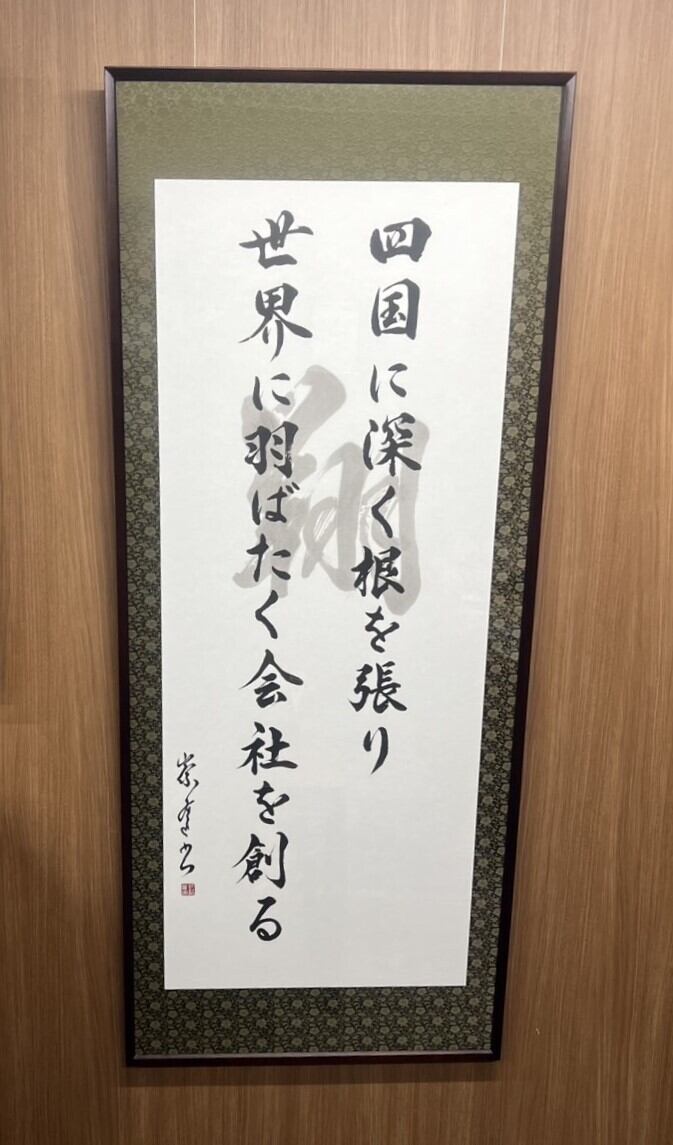 四国に深く根を張り
世界に羽ばたく会社を創る
翔